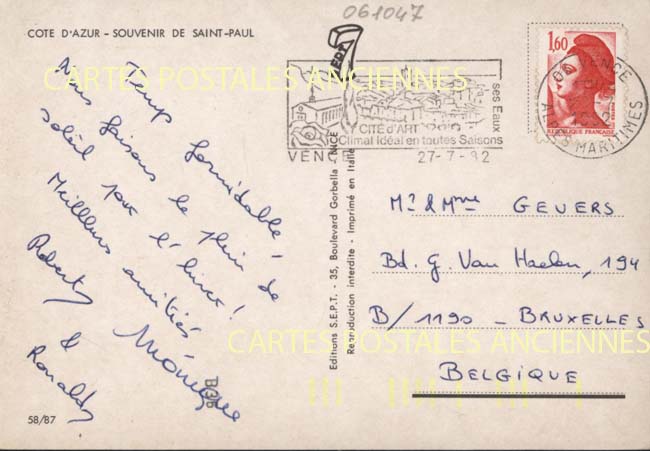 061047
COTE D'AZUR - SOUVENIR DE SAINT-PAUL
Temps formidable!
Nous faisons le plein de
soleil pour l'hiver!
Meilleures amitiés
Monique
Robert &
Ronald
58/87
Editions S.E.P.T. - 35, Boulevard Gorbella - NICE
Reproduction interdite - Imprimé en Italie
CITÉ d'ART
ses Eaux
Climat Idéal en toutes Saisons
VENCE
27-7-82
1,60
REPUBLIQUE FRANÇAISE
06 VENCE
ALPES MARITIMES
Mr & Mme GEVERS
Bd. G. Van Haelen, 194
B/1190 - BRUXELLES
BELGIQUE
CARTES POSTALES ANCIENNES
CARTES POSTALES ANCIENNES